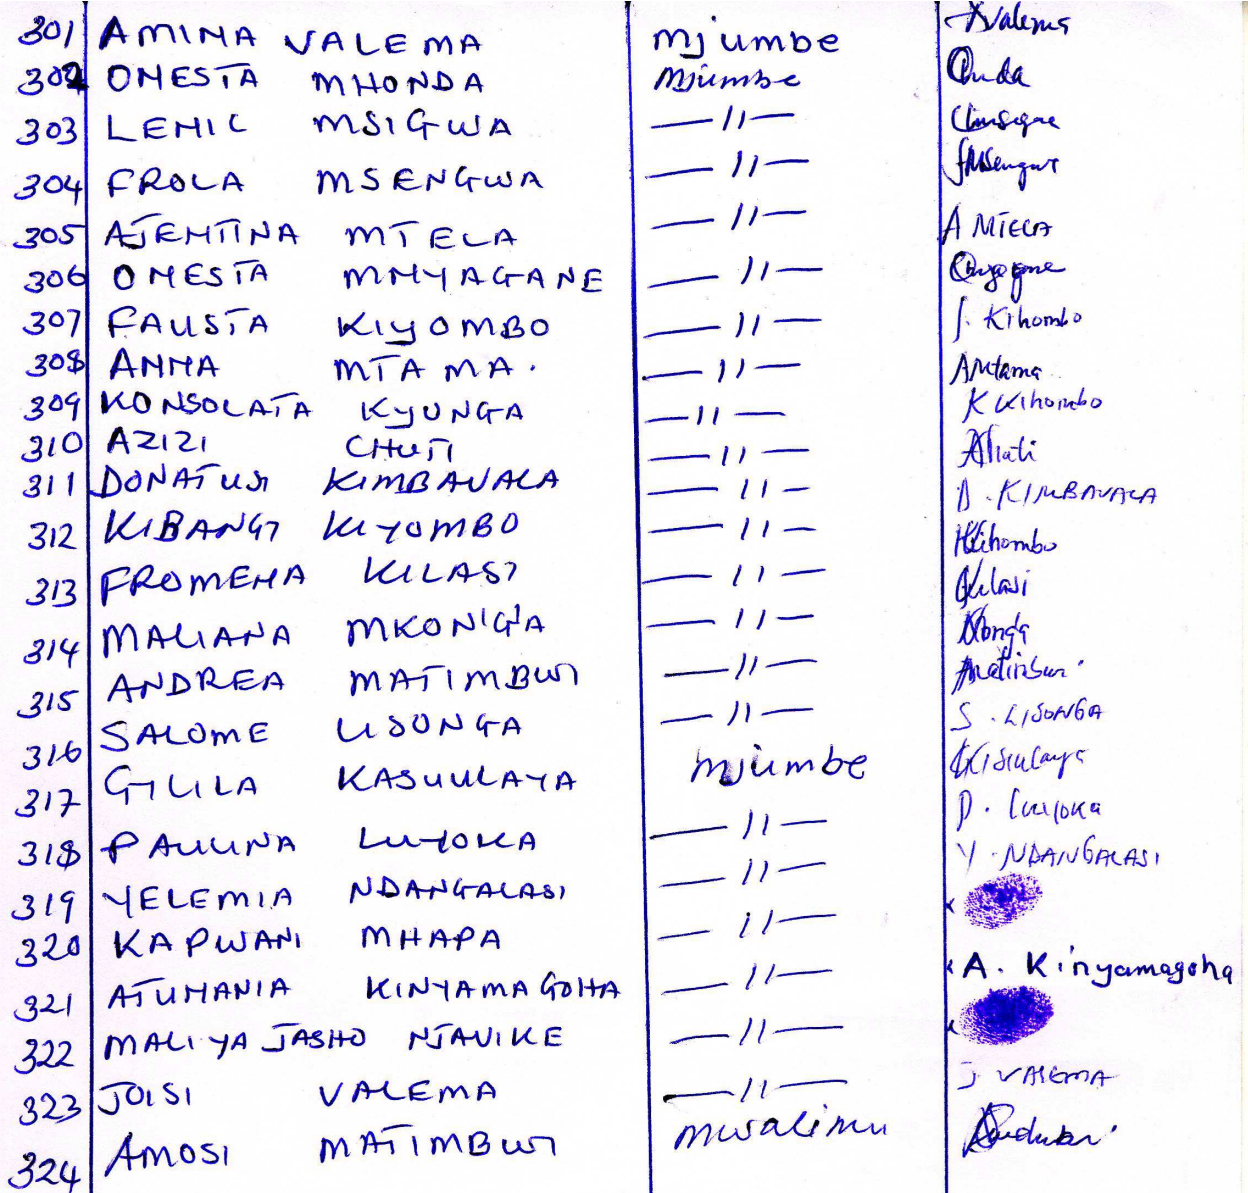 301 AMINA VALEMA mjumbe Avalema
302 ONESTA MHONDA Mjumbe
303 LENIC MSIGWA —11—
304 FROLA MSENGWA —11—
305 AJENTINA MTELA —11— A MTELA
306 ONESTA MNYAGANE —11—
307 FAUSTA KIYOMBO —11— f. Kihombo
308 ANNA MTAMA. —11— AMtama
309 KONSOLATA KYUNGA —11— K Kihombo
310 AZIZI CHUTI —11— AChuti
311 DONATUSI KIMBAVALA —11— D. KIMBAVALA
312 KIBANGI KIYOMBO —11— Kihombo
313 FROMENA KILASI —11— Kilasi
314 MALIANA MKONG'A —11—
315 ANDREA MATIMBWI —11—
316 SALOME LISONGA —11— S. LISONGA
317 GILILA KASUULAYA mjumbe
318 PAULINA LUYOKA —11— P. Luyoka
319 YELEMIA NDANGALASI —11— Y. NDANGALASI
320 KAPWANI MHAPA —11—
321 ATUMANIA KINYAMAGOHA —11— A. Kinyamagoha
322 MALIYA JASHO NJAVIKE —11—
323 JOISI VALEMA —11— J VALEMA
324 AMOSI MATIMBWI mwalimu